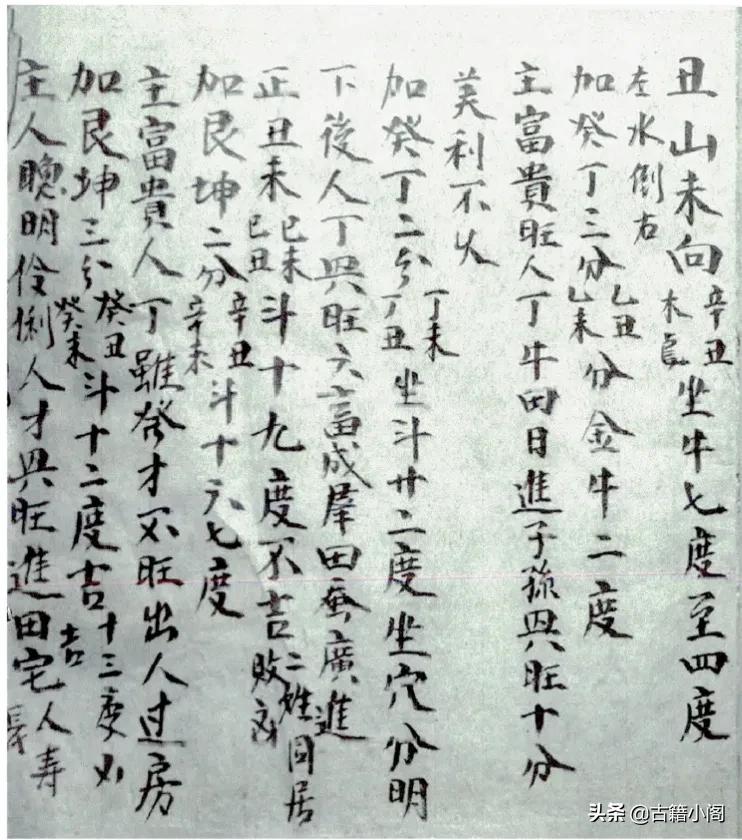 丑山未向辛丑木局坐牛七度至四度
左水倒右
加癸丁三分乙丑乙未分金牛二度
主富貴旺人丁牛田日進子孫興旺十分
美利不火
加癸丁二分丁未丁丑坐斗廿二度坐穴分明
下後人丁興旺六畜成羣田蚕廣進
正丑未己未己丑斗十九度不吉敗 二姓同居
加艮坤二分辛丑辛未斗十六七度
主富貴人丁雖發才不旺出人过房
加艮坤三分癸丑癸未斗十二度吉十三度 吉
主人聰明伶俐人才興旺進田宅人寿長
头条 @古籍小阁